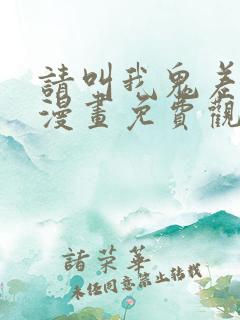 請叫我鬼差
漫畫免費觀
諸荣華
未经同意禁止转载